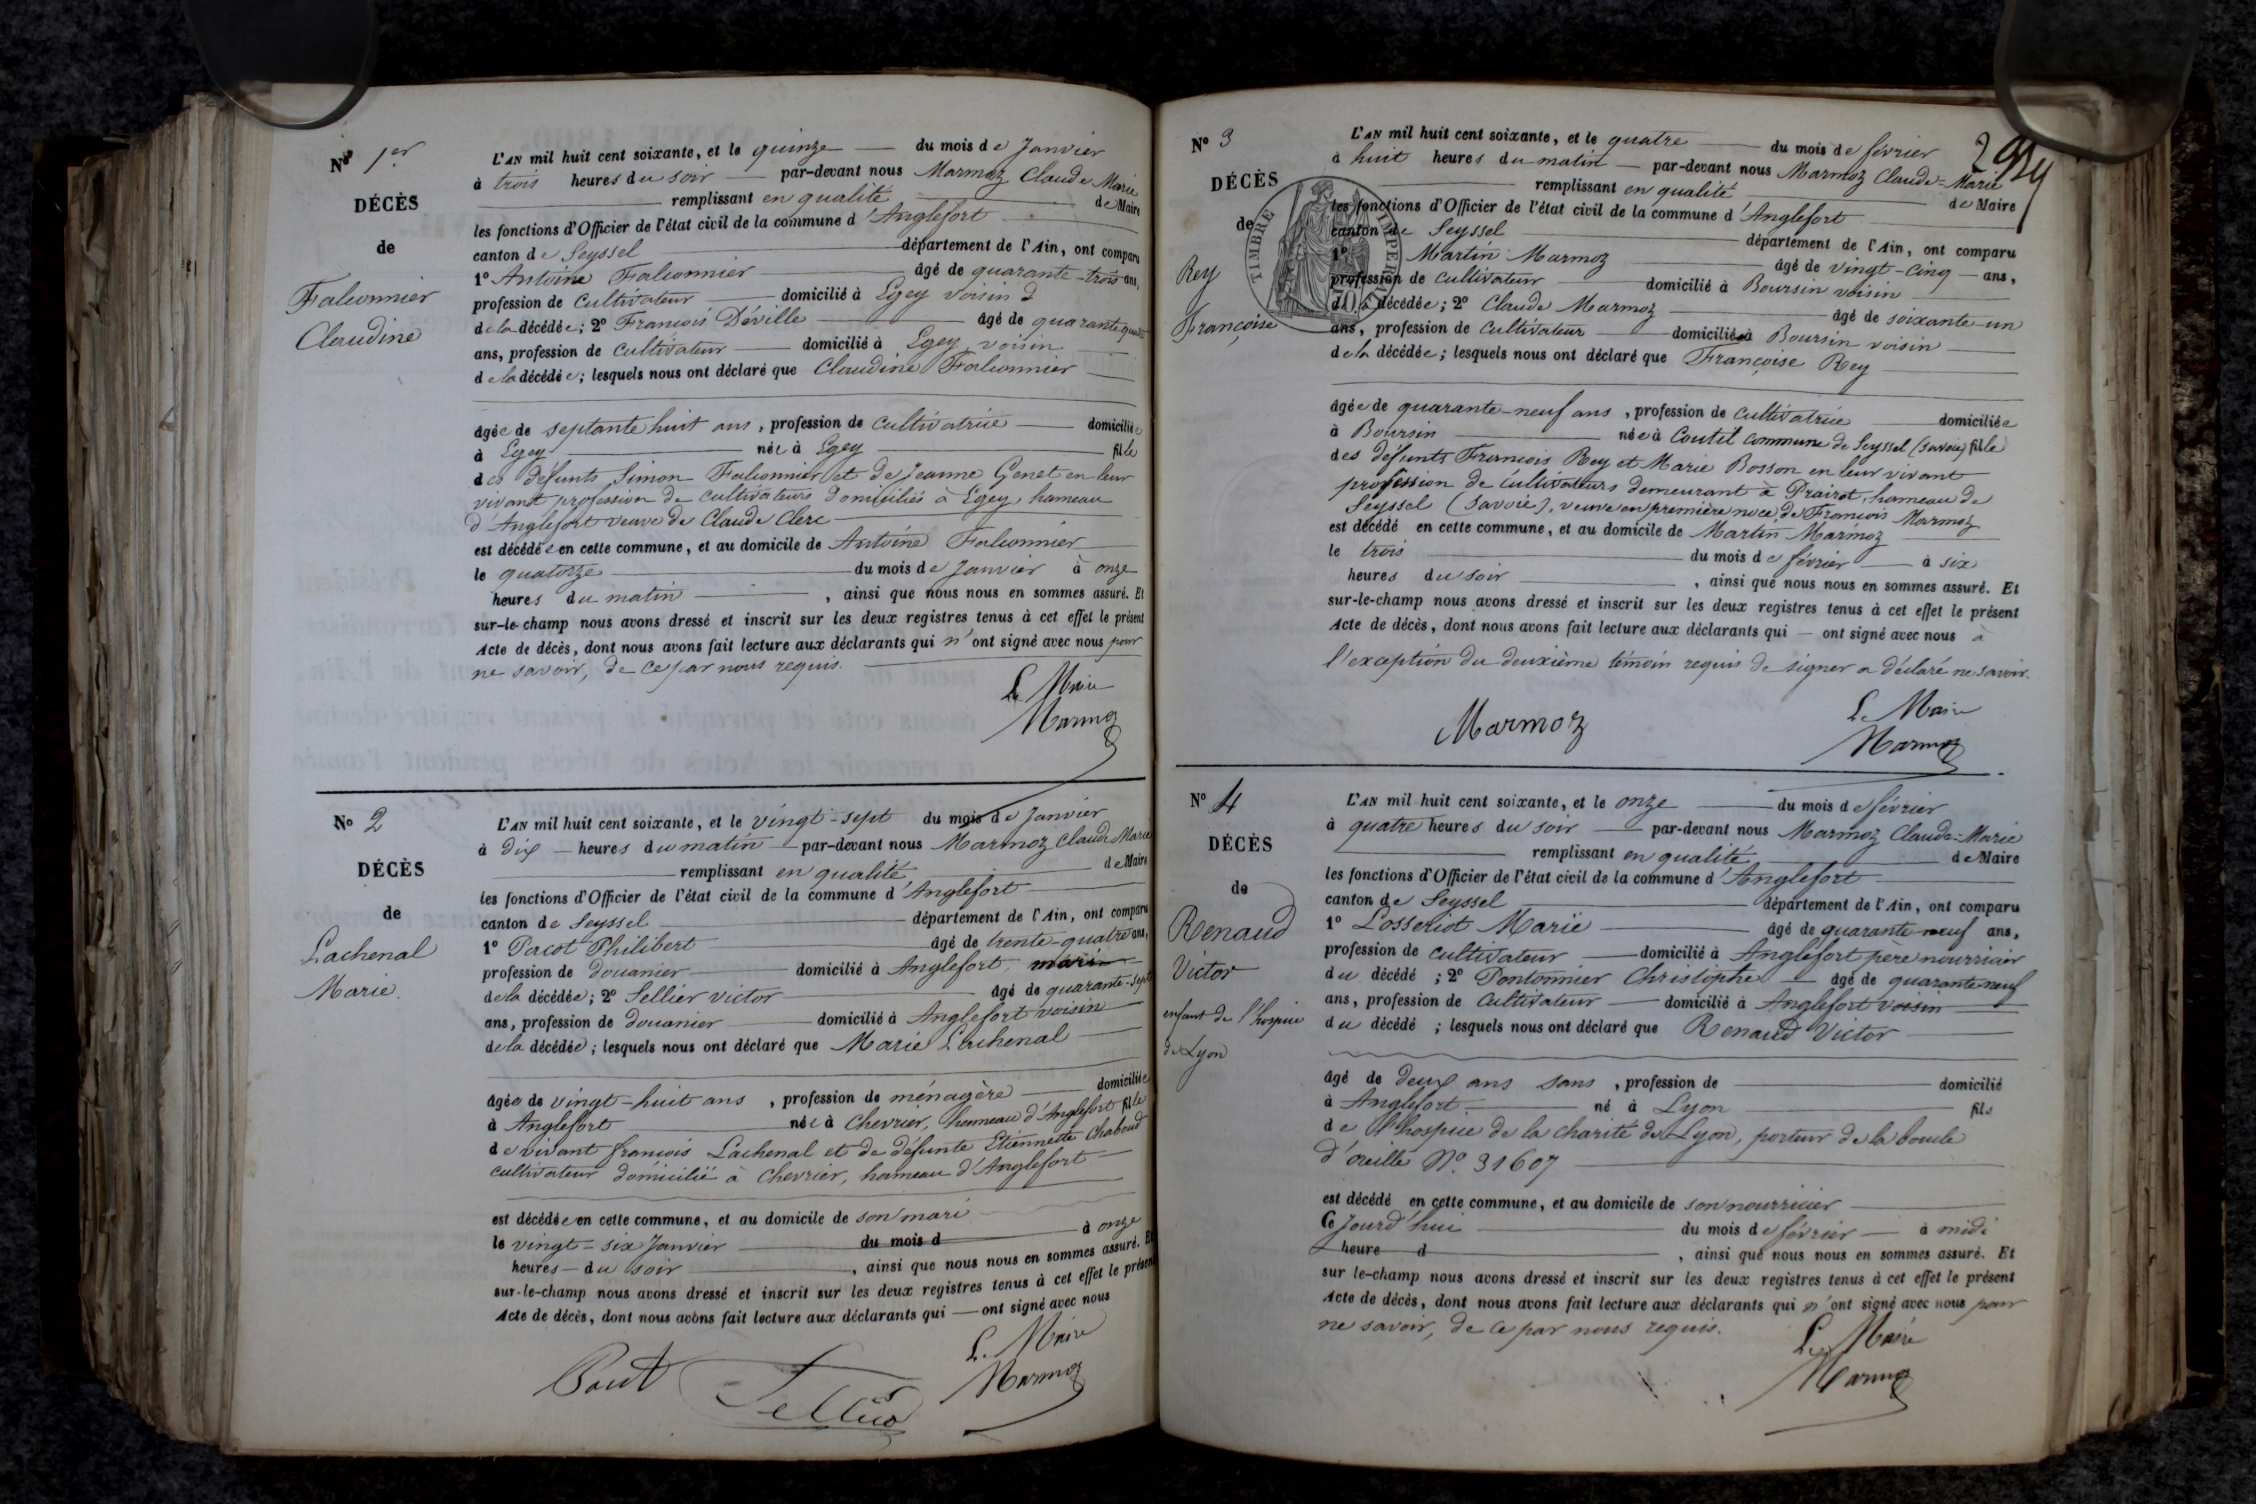 No 1er
DÉCÈS
de
Falconnier
Claudine
L'AN mil huit cent soixante, et le quinze du mois de Janvier
à trois heures du soir par-devant nous Marmoz Claude Marie
remplissant en qualité de Maire
les fonctions d'Officier de l'état civil de la commune d'Anglefort
canton de Seyssel département de l'Ain, ont comparu
1º Antoine Falconnier âgé de quarante-trois ans,
profession de cultivateur domicilié à Egey voisin d
de la décédée; 2º François Déville âgé de quarante quatre
ans, profession de cultivateur domicilié à Egey voisin
de la décédée; lesquels nous ont déclaré que Claudine Falconnier
âgée de septante huit ans, profession de cultivatrice domiciliée
à Egey née à Egey fille
des défunts Simon Falconnier et de Jeanne Genet en leur
vivant profession de cultivateurs domiciliés à Egey, hameau
d'Anglefort veuve de Claude Clerc
est décédée en cette commune, et au domicile de Antoine Falconnier
le quatorze du mois de Janvier à onze
heures du matin, ainsi que nous nous en sommes assuré. Et
sur-le-champ nous avons dressé et inscrit sur les deux registres tenus à cet effet le présent
Acte de décès, dont nous avons fait lecture aux déclarants qui n'ont signé avec nous pour
ne savoir, de ce par nous requis.
Le Maire
Marmoz
No 2
DÉCÈS
de
Lachenal
Marie.
L'AN mil huit cent soixante, et le vingt-sept du mois de Janvier
à dix heures du matin par-devant nous Marmoz Claude Marie
remplissant en qualité de Maire
les fonctions d'Officier de l'état civil de la commune d'Anglefort
canton de Seyssel département de l'Ain, ont comparu
1º Pacot Philibert âgé de trente-quatre ans,
profession de douanier domicilié à Anglefort, mari
de la décédée; 2º Sellier victor âgé de quarante-sept
ans, profession de douanier domicilié à Anglefort voisin
de la décédée; lesquels nous ont déclaré que Marie Lachenal
âgée de vingt-huit ans, profession de ménagère domiciliée
à Anglefort née à Chevrier, hameau d'Anglefort fille
de vivant françois Lachenal et de défunte Etiennette Chaboud
cultivateur domicilié à Chevrier, hameau d'Anglefort
est décédée en cette commune, et au domicile de son mari
le vingt-six Janvier du mois d à onze
heures du soir, ainsi que nous nous en sommes assuré. Et
sur-le-champ nous avons dressé et inscrit sur les deux registres tenus à cet effet le présent
Acte de décès, dont nous avons fait lecture aux déclarants qui ont signé avec nous
Le Maire
Pacot Sellier Marmoz
No 3
DÉCÈS
de
Rey
Françoise
TIMBRE IMPERIAL
L'AN mil huit cent soixante, et le quatre du mois de février
à huit heures du matin par-devant nous Marmoz Claude-Marie
remplissant en qualité de Maire
les fonctions d'Officier de l'état civil de la commune d'Anglefort
canton de Seyssel département de l'Ain, ont comparu
1º Martin Marmoz âgé de vingt-cinq ans,
profession de cultivateur domicilié à Boursin voisin
de la décédée; 2º Claude Marmoz âgé de soixante-un
ans, profession de cultivateur domicilié à Boursin voisin
de la décédée; lesquels nous ont déclaré que Françoise Rey
âgée de quarante-neuf ans, profession de cultivatrice domiciliée
à Boursin née à Coutet commune de Seyssel (savoie) fille
des défunts François Rey et Marie Bosson en leur vivant
profession de cultivateurs demeurant à Prairot, hameau de
Seyssel (Savoie), veuve en première noce de François Marmoz
est décédé en cette commune, et au domicile de Martin Marmoz
le trois du mois de février à six
heures du soir, ainsi que nous nous en sommes assuré. Et
sur-le-champ nous avons dressé et inscrit sur les deux registres tenus à cet effet le présent
Acte de décès, dont nous avons fait lecture aux déclarants qui ont signé avec nous à
l'exception du deuxième témoin requis de signer a déclaré ne savoir.
Le Maire
Marmoz Marmoz
No 4
DÉCÈS
de
Renaud
Victor
enfant de l'hospice
de Lyon
L'AN mil huit cent soixante, et le onze du mois de février
à quatre heures du soir par-devant nous Marmoz Claude-Marie
remplissant en qualité de Maire
les fonctions d'Officier de l'état civil de la commune d'Anglefort
canton de Seyssel département de l'Ain, ont comparu
1º Losseriot Marie âgé de quarante neuf ans,
profession de cultivateur domicilié à Anglefort père nourricier
du décédé; 2º Pontonnier Christophe âgé de quarante neuf
ans, profession de cultivateur domicilié à Anglefort voisin
du décédé; lesquels nous ont déclaré que Renaud Victor
âgé de deux ans sans, profession de domicilié
à Anglefort né à Lyon fils
de l'hospice de la charité de Lyon, porteur de la boucle
d'oreille No. 31607
est décédé en cette commune, et au domicile de son nourricier
Ce Jourd'hui du mois de février à midi
heure d, ainsi que nous nous en sommes assuré. Et
sur le-champ nous avons dressé et inscrit sur les deux registres tenus à cet effet le présent
Acte de décès, dont nous avons fait lecture aux déclarants qui n'ont signé avec nous pour
ne savoir, de ce par nous requis.
Le Maire
Marmoz